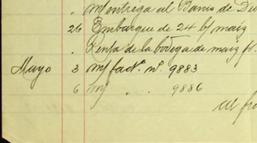 . Mi entrega al Banco de
26 Embarque de 24 bf maiz
. Venta de la bodega de maiz
Mayo 3 m/ fact.ª nº 9883
6 m/ . . . 9886
al